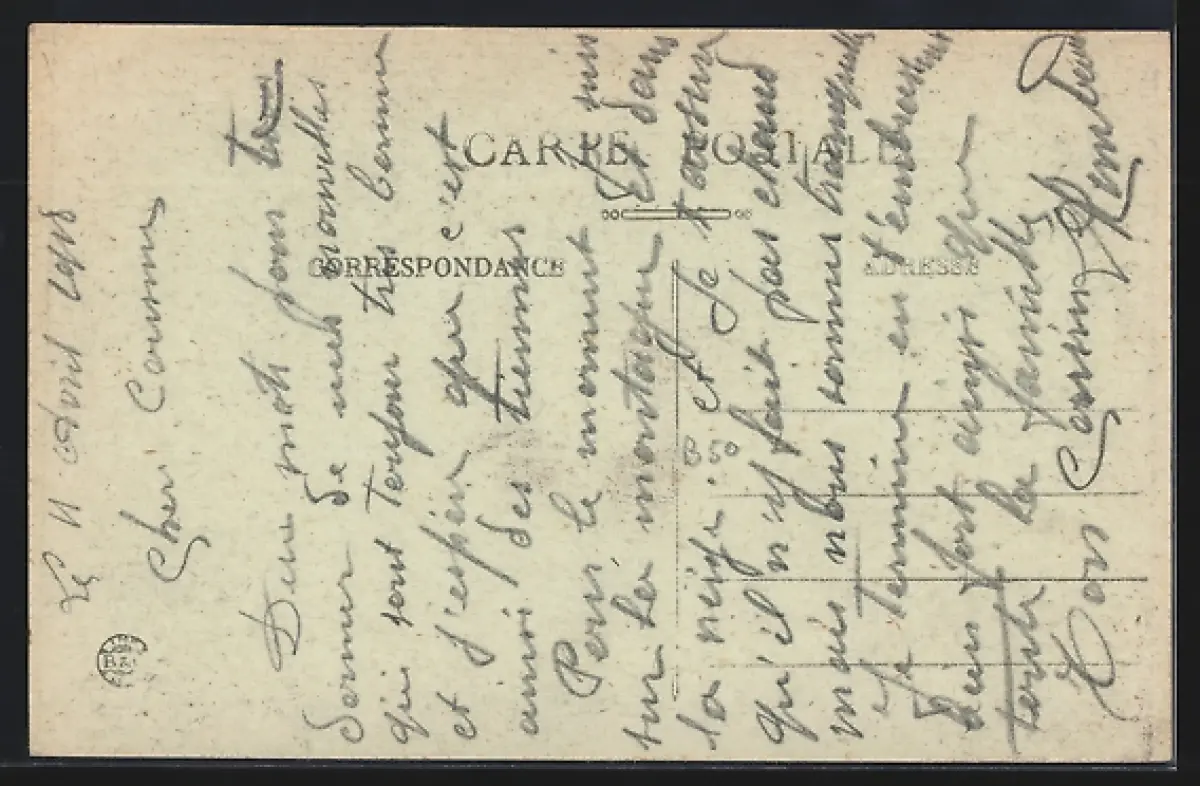 CARTE POSTALE
CORRESPONDANCE
ADRESSE
B 50
Le 11 Avril 1918
Cher Cousin
Deux mots pour te
donner de mes nouvelles
qui sont toujour très bonne
et j'espère que c'est
ainsi des tiennes
Pour le moment Je suis
sur la montagne Et dans
la neige. et Je t'assur
qu'il n'y fait pas chaud
mais nous somme tranquille
Je termine en t'embrassant
bien fort ainsi que
toute la famille
Ton Cousin